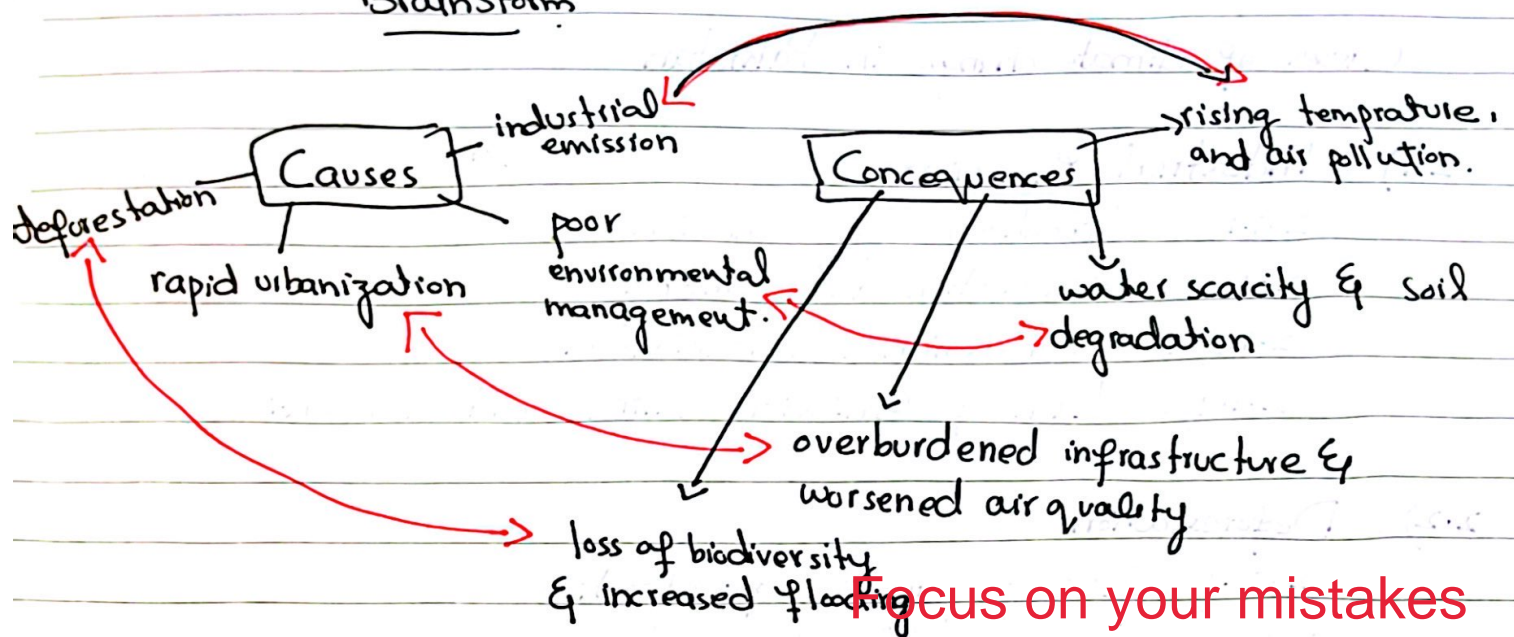 Brainstorm
industrial
emission
Causes
deforestation
rapid urbanization
poor
environmental
management.
Concequences
rising temprature,
and air pollution.
water scarcity & soil
degradation
overburdened infrastructure &
worsened air quality
loss of biodiversity
& increased flooding
Focus on your mistakes